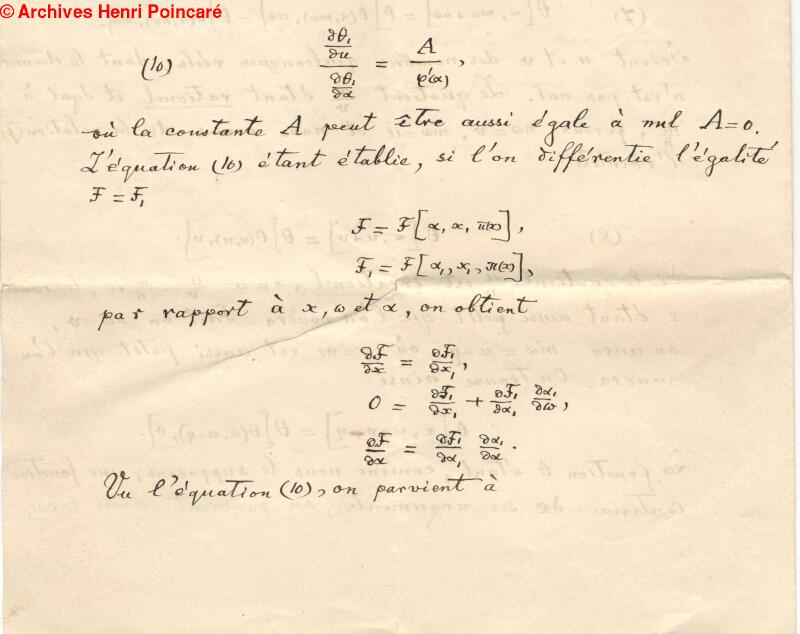 © Archives Henri Poincaré
(10) \frac{\frac{∂θ_1}{∂u}}{\frac{∂θ_1}{∂α}} = \frac{A}{φ'(α)},
où la constante A peut être aussi égale à nul A=0.
L'équation (10) étant établie, si l'on différentie l'égalité
F = F_1
F = F[α, x, π(x)],
F_1 = F[α_1, x_1, π(x)],
par rapport à x, ω et α, on obtient
\frac{∂F}{∂x} = \frac{∂F_1}{∂x_1},
0 = \frac{∂F_1}{∂x_1} + \frac{∂F_1}{∂α_1} \frac{∂α_1}{∂ω},
\frac{∂F}{∂α} = \frac{∂F_1}{∂α_1} \frac{∂α_1}{∂α}.
Vu l'équation (10), on parvient à